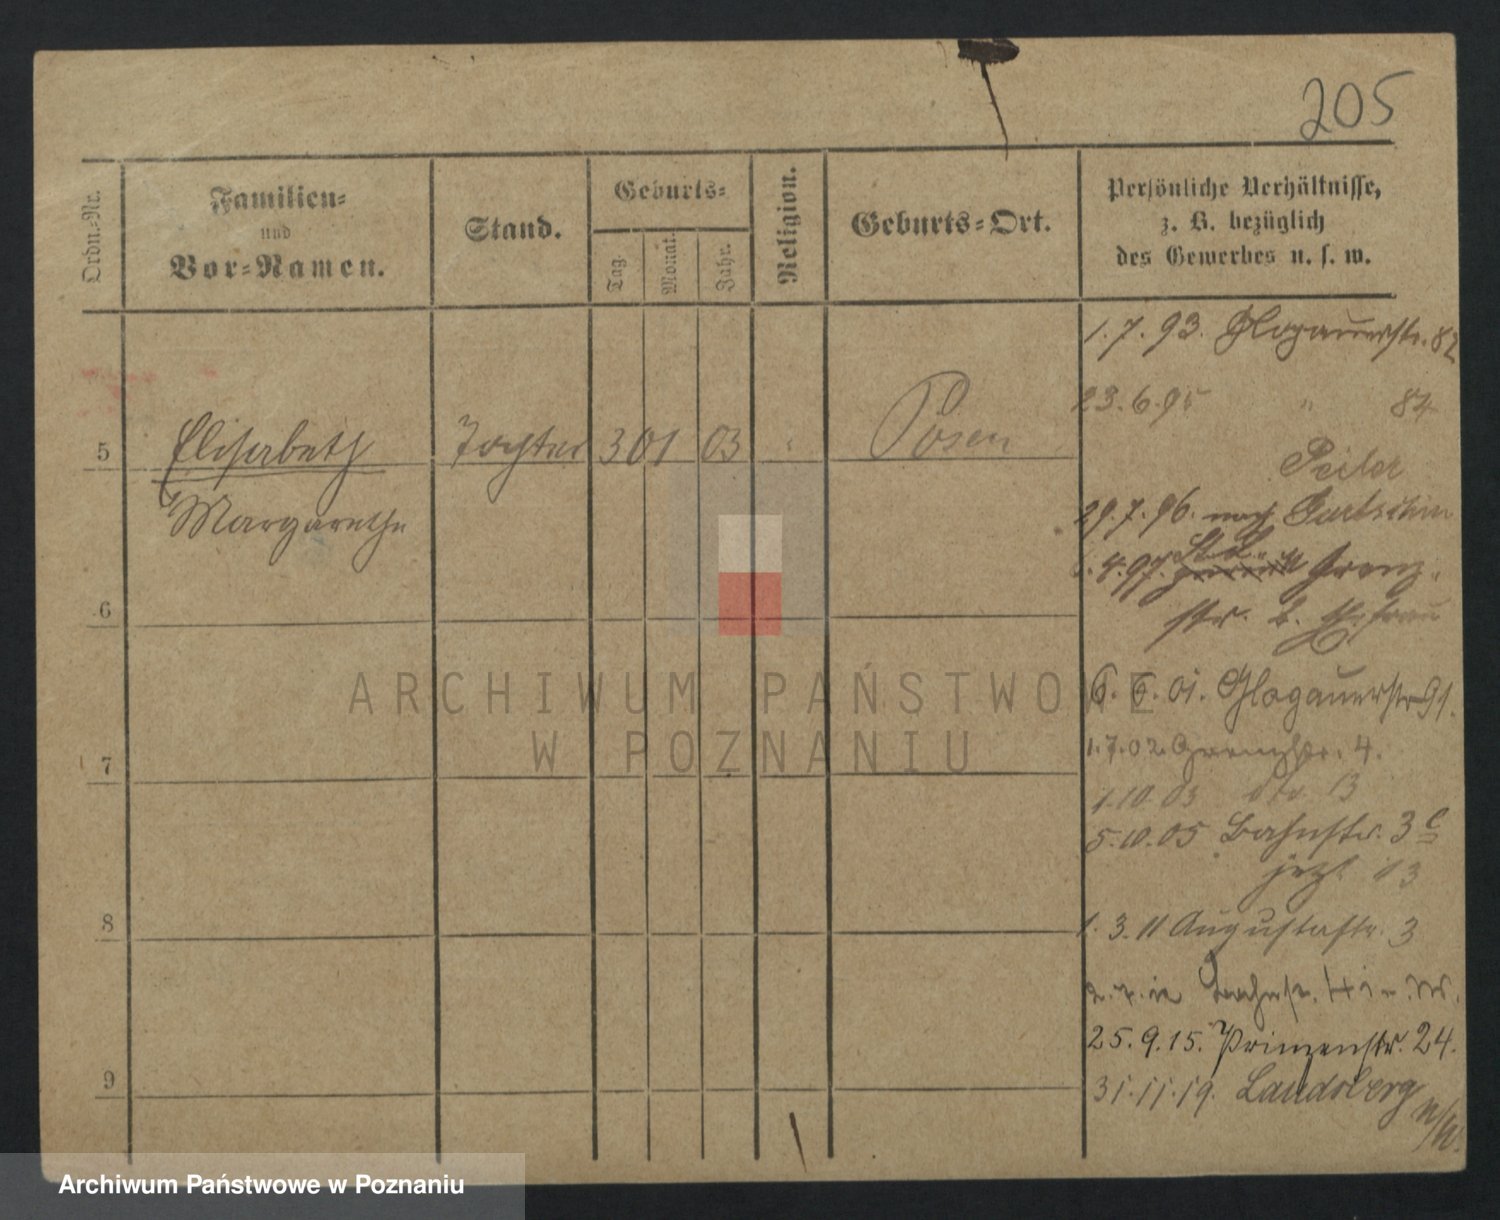 205
Ordn.-Nr.
Familien-
und
Vor-Namen.
Stand.
Geburts-
Tag.
Monat.
Jahr.
Religion.
Geburts-Ort.
Persönliche Verhältnisse,
z. B. bezüglich
des Gewerbes u. s. w.
1.7.93. Glogauerstr. 82
23.6.95 " 84
5 Elisabeth Tochter 30 1 03 " Posen
Margarethe
29.7.96. nach
4.97. Grenz-
str. 2.
6
6.6.01. Glogauerstr 91.
1.7.02 Grenzstr. 4.
7
1.10.03 13
5.10.05 Bahnstr. 3c
jetzt 13
8
1.3.11 Augustastr. 3
2.7.12 Bahnstr.
25.9.15. Prinzenstr. 24.
9
31.11.19. Landsberg
a/W.
ARCHIWUM PAŃSTWOWE
W POZNANIU
Archiwum Państwowe w Poznaniu